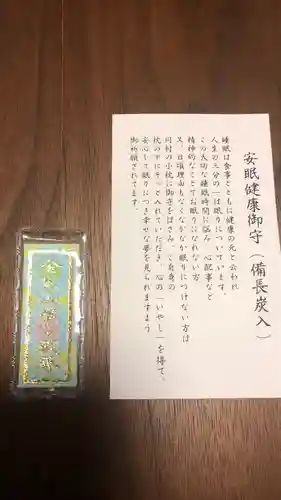 安眠健康御守（備長炭入）
睡眠は食事とともに健康の元と云われ
人生の三分の一は眠りについています。
この大切な睡眠時間に悩み、心配事など
精神的なことでお眠りになれない方
又、日頃理由もなくなかなか眠りにつけない方は
同封の小枕に御守をはさみ、ご自身の
枕の下にそっと入れていただき、心の「いやし」を得て、
安心して眠りにつき幸せな夢を見られますよう
御祈願されてます。